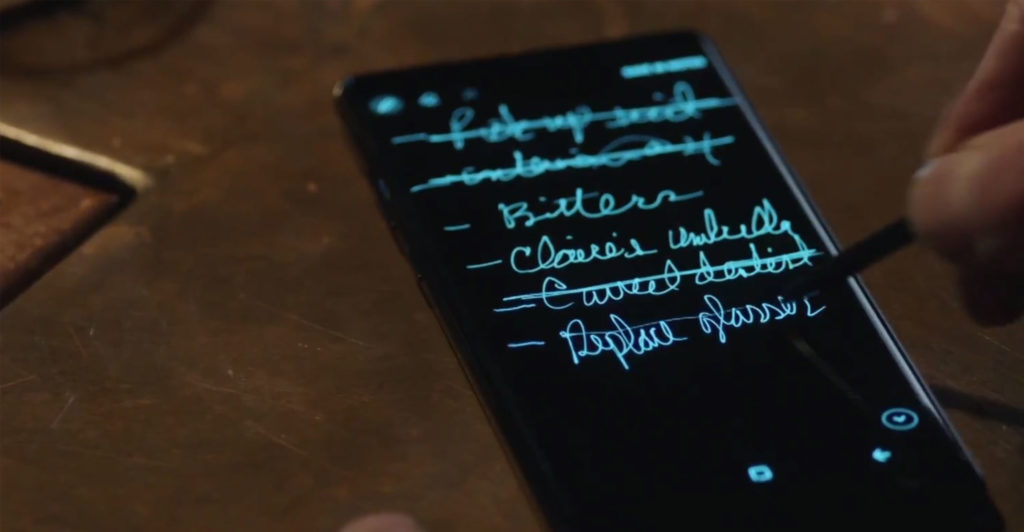 - Pick up
- Bitters
- Claire's umbrella
- Cancel dentist
- Replace glasses